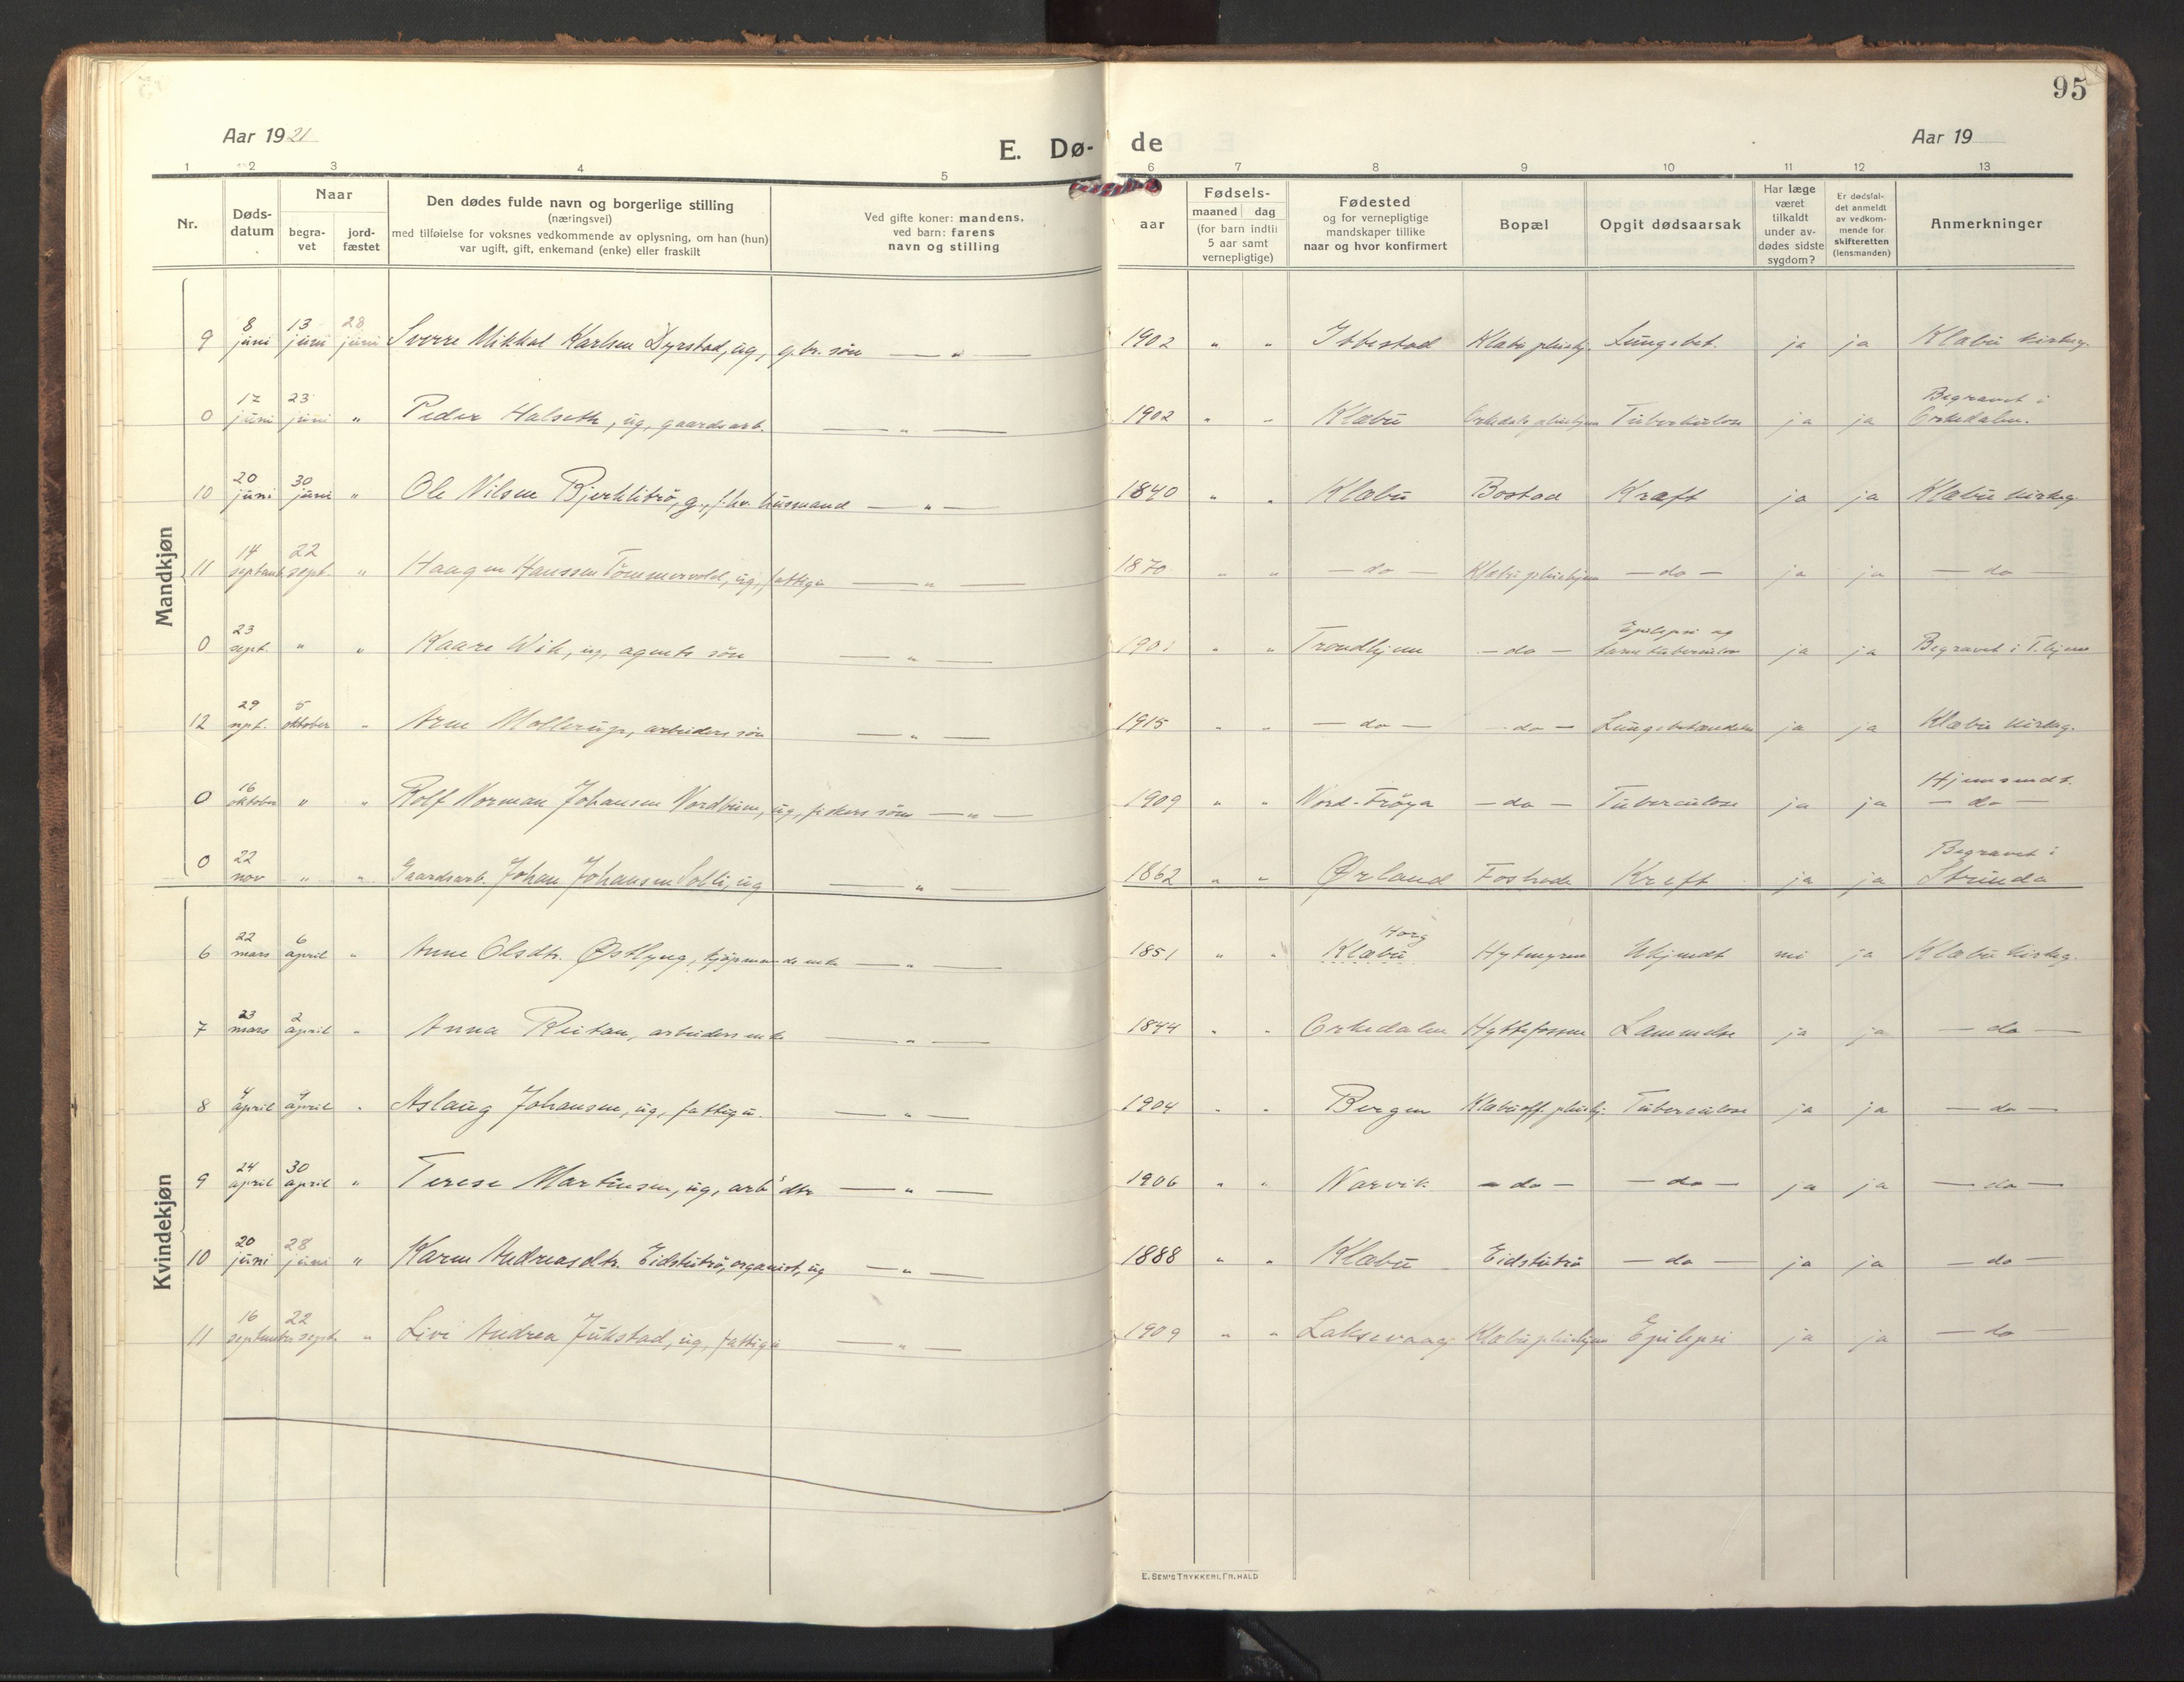 95
Aar 1921
E. Dø-
de
Aar 19
1 2 3 4 5 6 7 8 9 10 11 12 13
Nr.
Døds-
datum
Naar
begra-
vet
jord-
fæstet
Den dødes fulde navn og borgerlige stilling
(næringsvei)
med tilføielse for voksnes vedkommende av oplysning, om han (hun)
var ugift, gift, enkemand (enke) eller fraskilt
Ved gifte koner: mandens,
ved barn: farens
navn og stilling
aar
Fødsels-
maaned dag
(for barn indtil
5 aar samt
vernepligtige)
Fødested
og for vernepligtige
mandskaper tillike
naar og hvor konfirmert
Bopæl
Opgit dødsaarsak
Har læge
været
tilkaldt
under av-
dødes sidste
sygdom?
Er dødsfal-
det anmeldt
av vedkom-
mende for
skifteretten
(lensmanden)
Anmerkninger
Mandkjøn
9 8 juni 13 juni 28 juni Sverre Mikkal Karlsen Dyrstad, ug., g.br. søn — " — 1902 " " Ibbestad Klæbu pleiehj. Lungebet. ja ja Klæbu kirkeg.
0 17 juni 23 juni " Peder Halseth, ug., gaardsarb. — " — 1902 " " Klæbu Orkedals pleiehjem Tuberkulose ja ja Begravet i Orkedalen.
10 20 juni 30 juni " Ole Nilsen Bjerklitrø, g., f.hv. husmand — " — 1840 " " Klæbu Bostad Kræft ja ja Klæbu kirkeg.
11 14 septemb. 22 sept. " Haagen Hanssen Tömmervold, ug., fattigu — " — 1870 " " — do — Klæbu pleiehjem — do — ja ja — do —
0 23 sept. " " Kaare Wik, ug., agents søn — " — 1901 " " Trondhjem — do — Epilepsi og tarmtuberculose ja ja Begravet i T.hjem
12 29 sept. 5 oktober " Arne Mollerup, arbeiders søn — " — 1915 " " — do — — do — Lungebetændelse ja ja Klæbu kirkeg.
0 16 oktober " " Rolf Norman Johansen Nordbuen, ug., fiskers søn — " — 1909 " " Nord-Frøya — do — Tuberculose ja ja Hjemsendt. — do —
0 22 nov " " Gaardsarb. Johan Johansen Solli, ug — " — 1862 " " Ørland Foshode Kreft ja ja Begravet i Strinda
Kvindekjøn
6 22 mars 6 april " Anne Olsdtr. Østlyng, kjøpmands enke — " — 1851 " " Horg Klæbu Hytmyren Ukjendt nei ja Klæbu kirkeg.
7 23 mars 2 april " Anna Reitan, arbeiders enke — " — 1844 " " Orkedalen Hyttefossen Lammelse ja ja — do —
8 4 april 9 april " Aslaug Johansen, ug., fattigu. — " — 1904 " " Bergen Klæbu off. pleiehj. Tuberculose ja ja — do —
9 24 april 30 april " Terese Martinsen, ug., arb. dtr. — " — 1906 " " Narvik — do — — do — ja ja — do —
10 20 juni 28 juni " Karen Andreasdtr. Eidstutrø, organist, ug — " — 1888 " " Klæbu Eidstutrø — do — ja ja — do —
11 16 september 22 sept. " Livi Andrea Jukstad, ug., fattigu — " — 1909 " " Laksevaag Klæbu pleiehjem Epilepsi ja ja — do —
E. SEM'S TRYKKERI, FR.HALD